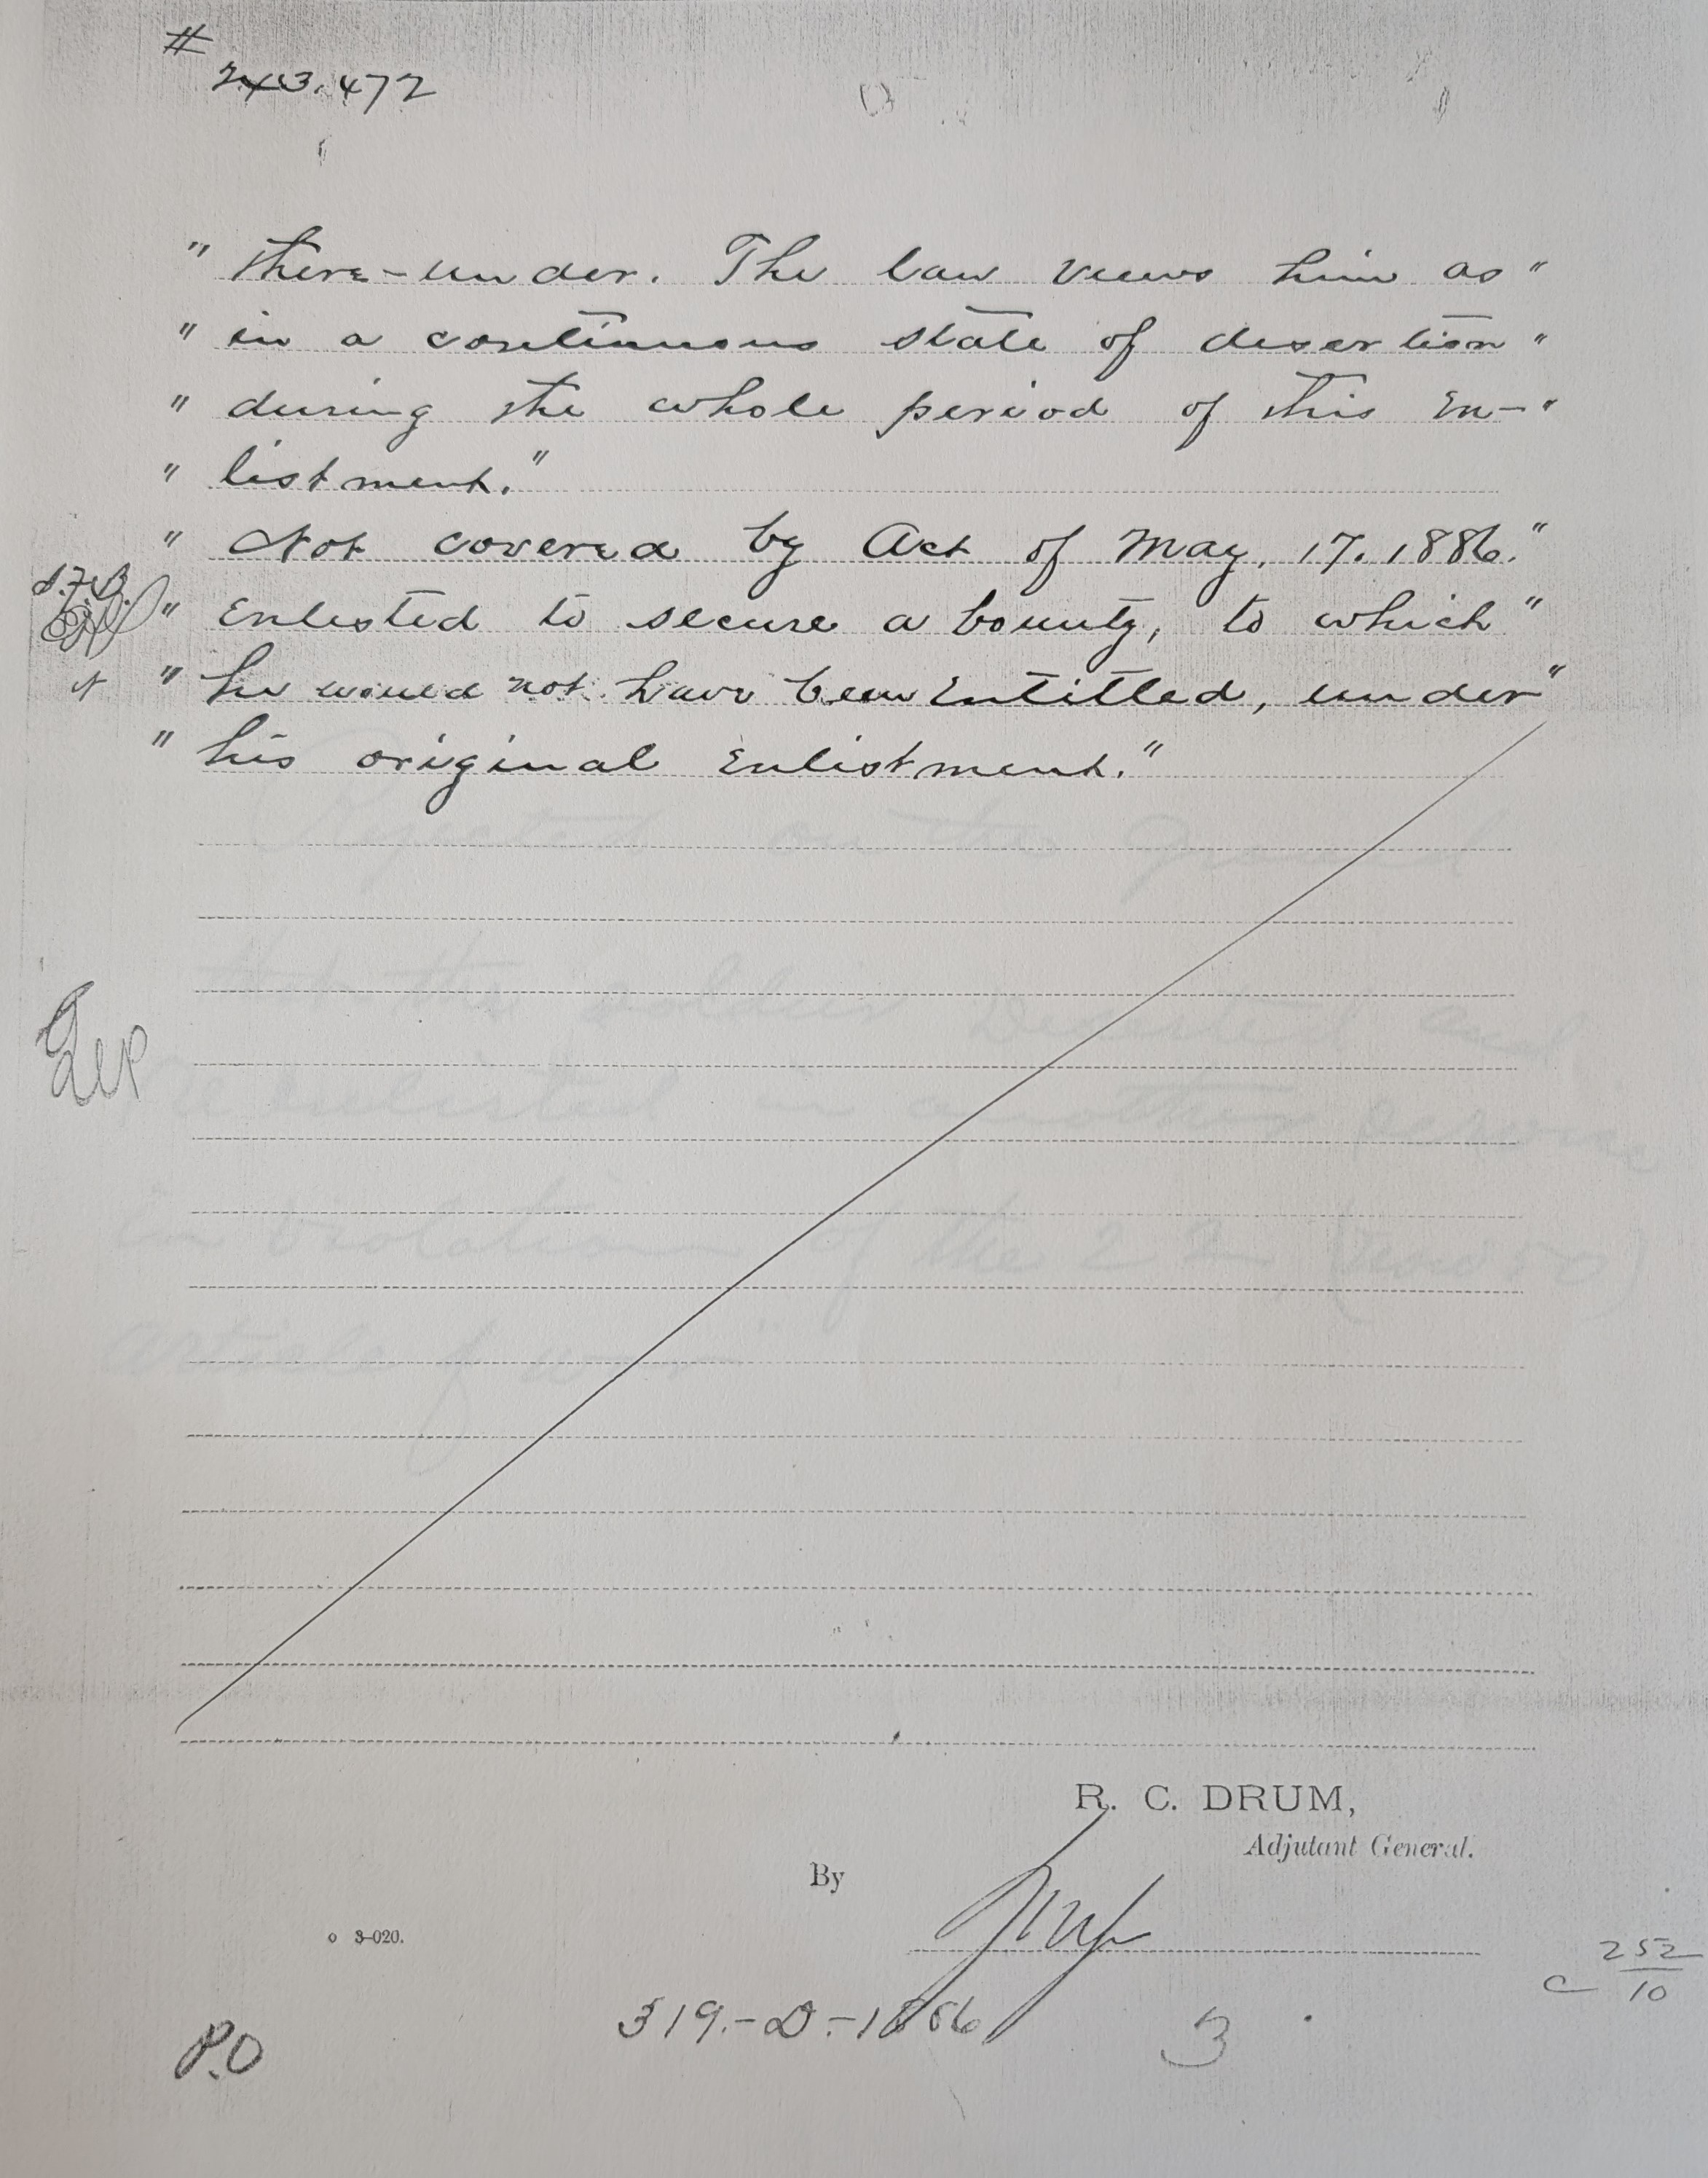 #
243.472
" there-under. The law views him as "
" in a continuous state of desertion "
" during the whole period of this En- "
" listment."
" Not covered by Act of May, 17. 1886."
" Enlisted to secure a bounty, to which "
" he would not have been Entitled, under "
" his original Enlistment."
Rejected on the ground
that the soldier deserted and
re enlisted in another
in violation of the 22 (now 50)
article of war
R. C. DRUM,
Adjutant General.
By
o 3-020.
252
C
10
319.-D.-1886
3
P.O